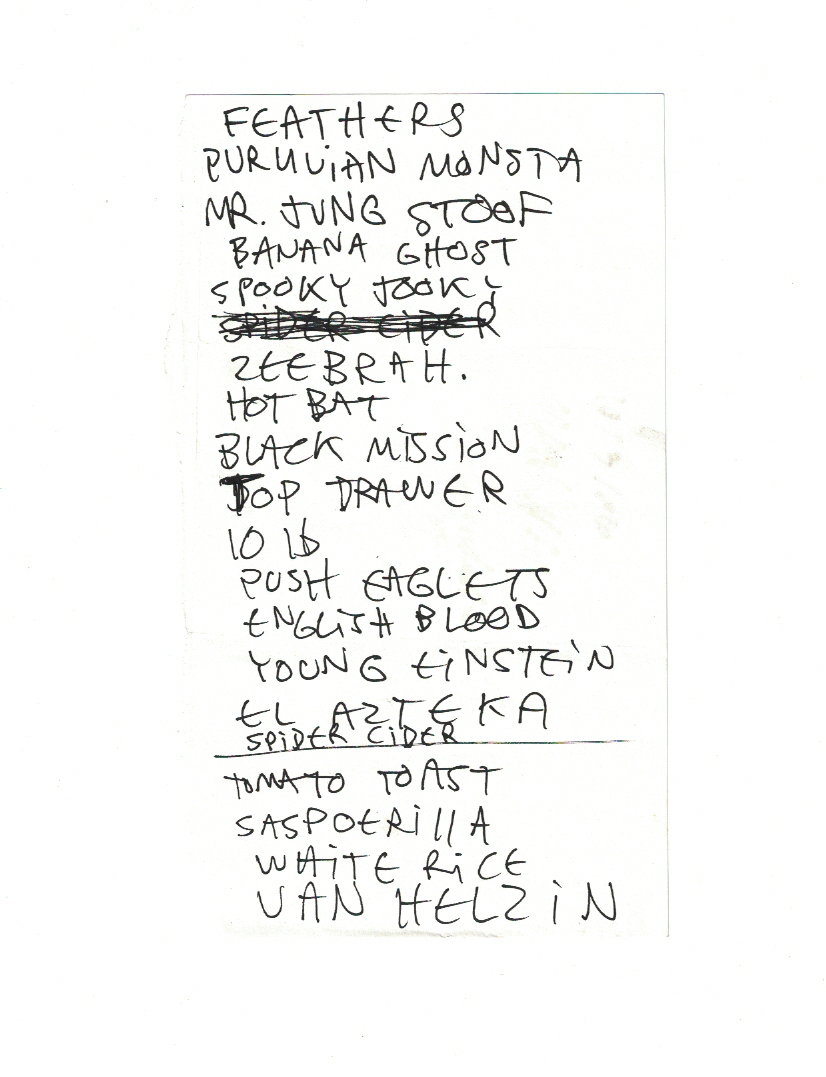 FEATHERS
PURUVIAN MONSTA
MR. JUNG STOOF
BANANA GHOST
SPOOKY JOOKY
SPIDER CIDER
ZEEBRAH.
HOT BAT
BLACK MISSION
TOP DRAWER
10 lb
PUSH EAGLETS
ENGLISH BLOOD
YOUNG EINSTEIN
EL AZTEKA
SPIDER CIDER
TOMATO TOAST
SASPOERILLA
WHITE RICE
VAN HELZIN